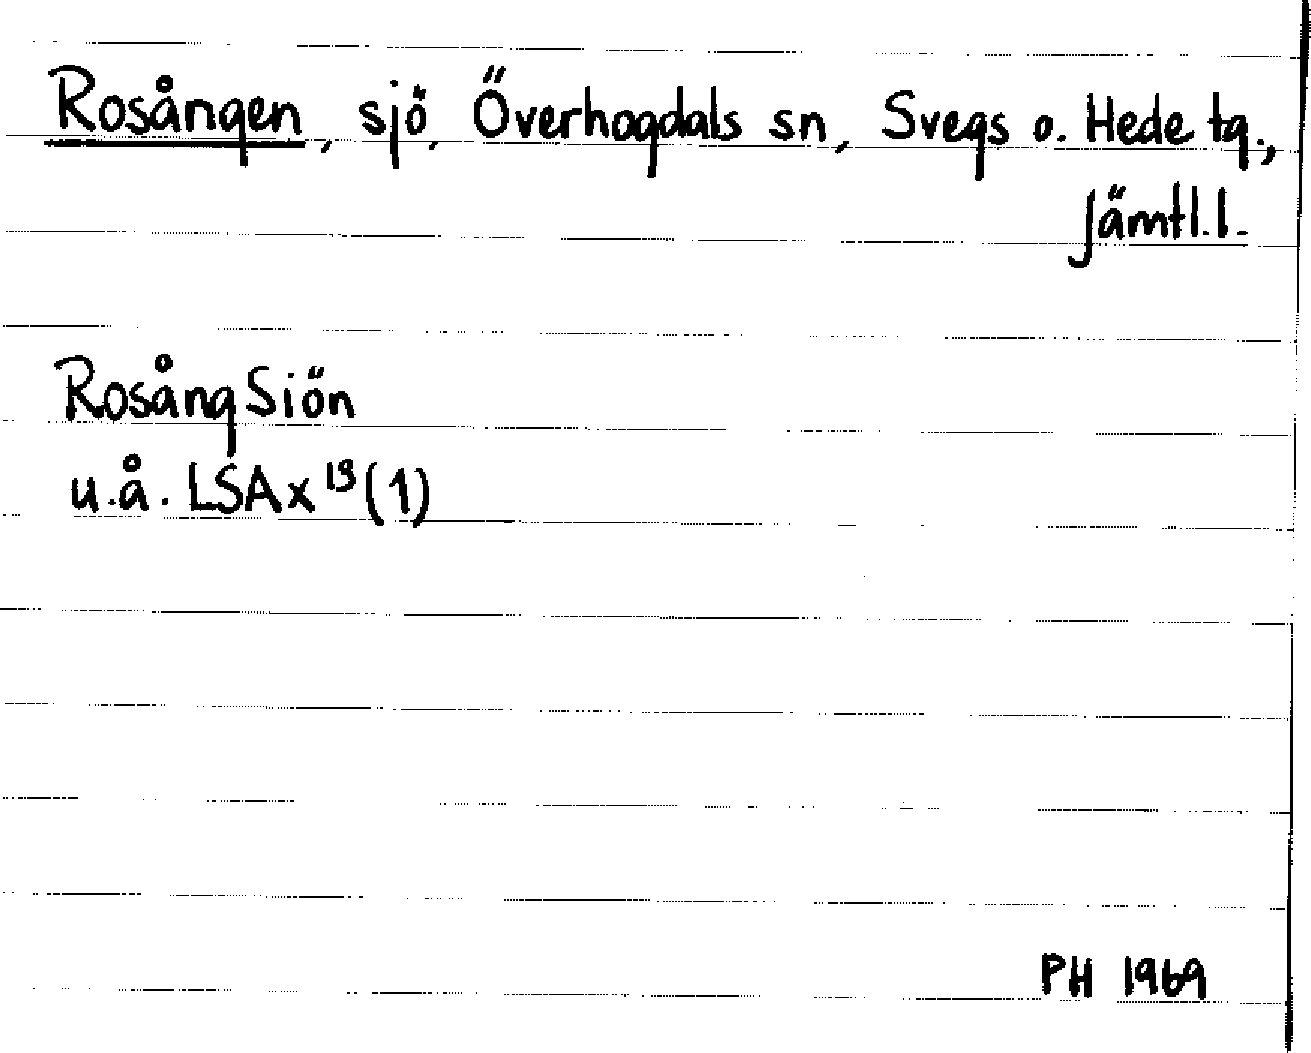 Rosången, sjö, Överhogdals sn, Svegs o. Hede tg.,
Jämtl.l.
RosångSiön
u.å. LSA x¹³(1)
PH 1969